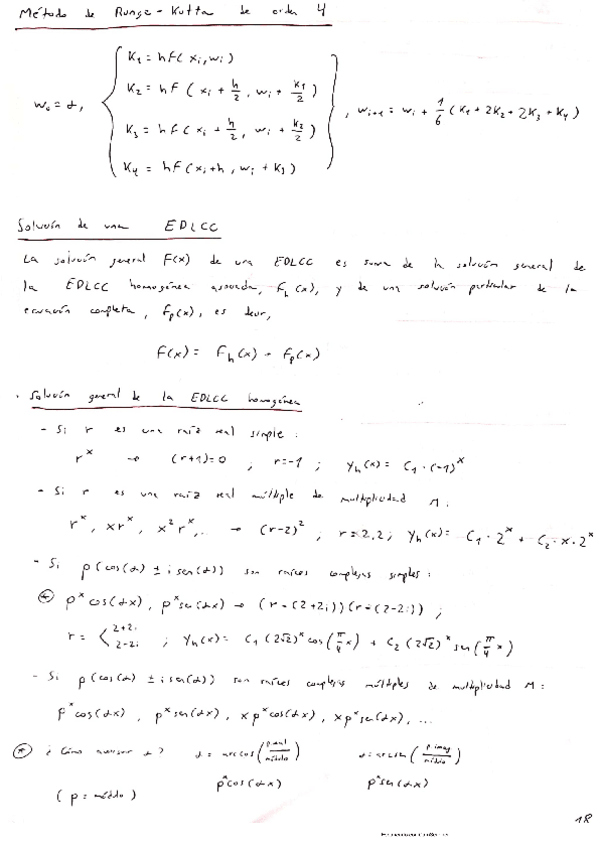 Método de Runge-Kutta de orden 4
K₁ = hF(xᵢ, wᵢ)
K₂ = hF(xᵢ + h/2, wᵢ + K₁/2)
w₀ = α, , wᵢ₊₁ = wᵢ + 1/6 (K₁ + 2K₂ + 2K₃ + K₄)
K₃ = hF(xᵢ + h/2, wᵢ + K₂/2)
K₄ = hF(xᵢ+h, wᵢ + K₃)
Solución de una EDLCC
La solución general F(x) de una EDLCC es suma de la solución general de
la EDLCC homogénea asociada, Fₕ(x), y de una solución particular de la
ecuación completa, Fₚ(x), es decir,
F(x) = Fₕ(x) + Fₚ(x)
· Solución general de la EDLCC homogénea
- Si r es una raíz real simple:
rˣ → (r+1)=0 ; r=-1 ; yₕ(x) = C₁·(-1)ˣ
- Si r es una raíz real múltiple de multiplicidad M:
rˣ, xrˣ, x²rˣ,.. → (r-2)², r=2,2; yₕ(x) = C₁·2ˣ + C₂·x·2ˣ
- Si ρ(cos(α) ± i sen(α)) son raíces complejas simples:
* ρˣcos(αx), ρˣsen(αx) → (r-(2+2i))(r-(2-2i));
r = < 2+2i 2-2i ; yₕ(x) = C₁(2√2)ˣ cos(π/4 x) + C₂(2√2)ˣ sen(π/4 x)
- Si ρ(cos(α) ± i sen(α)) son raíces complejas múltiples de multiplicidad M:
ρˣcos(αx), ρˣsen(αx), xρˣcos(αx), xρˣsen(αx), ...
* ¿Cómo α? α = arccos(p.real/módulo) α = arcsen(p.imag/módulo)
(ρ = módulo) ρˣcos(αx) ρˣsen(αx)
18